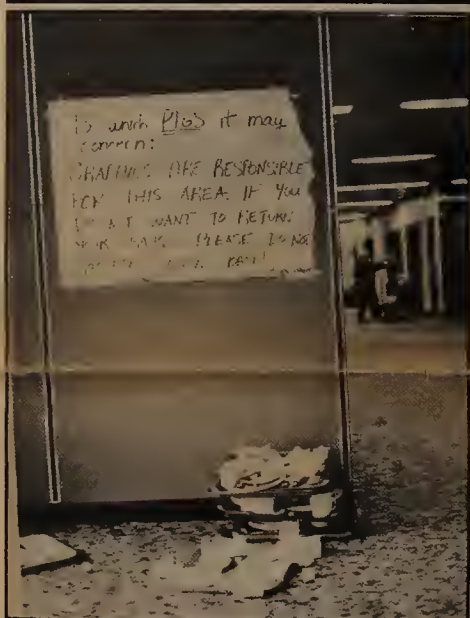 To which PIGS it may
concern:
GRAPHICS ARE RESPONSIBLE
FOR THIS AREA. IF YOU
DO NOT WANT TO RETURN
YOUR PLEASE DO NOT